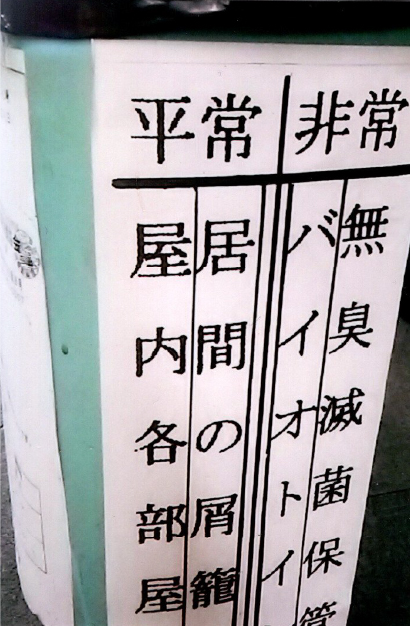 非常
無臭滅菌保管
バイオトイ
平常
居間の屑籠
屋内各部屋